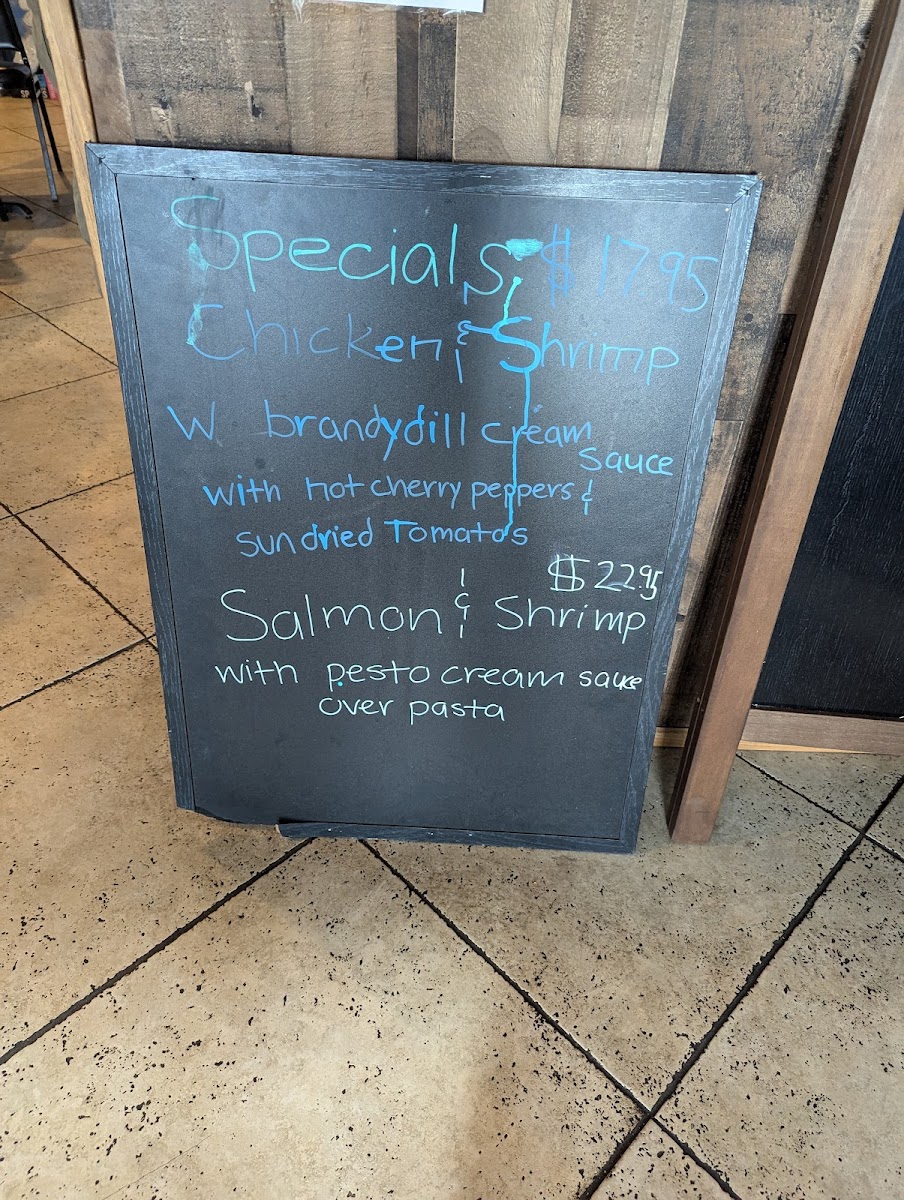 Specials, $17.95
Chicken & Shrimp
W brandy dill cream
sauce
with hot cherry peppers &
sun dried Tomatos
$22.95
Salmon & Shrimp
with pesto cream sauce
over pasta